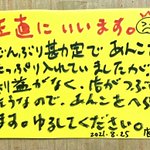 正直にいいます。
どんぶり勘定であんこ
たっぷり入れていましたが、
利益がなく、店がつぶ
そうなので、あんこをへら
ます。ゆるしてください。
2021.8.25 店